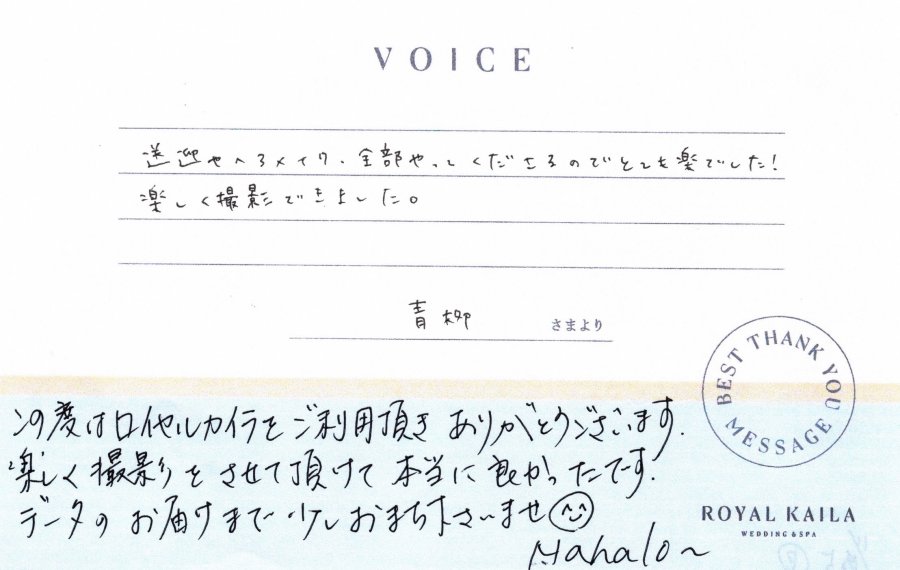 VOICE
送迎やヘアメイク、全部やってくださるのでとても楽でした!
楽しく撮影できました。
青柳 さまより
BEST THANK YOU MESSAGE
この度はロイヤルカイラをご利用頂き ありがとうございます.
楽しく撮影をさせて頂けて本当に良かったです.
データの お届けまで 少しおまち下さいませ
Mahalo~
ROYAL KAILA
WEDDING & SPA